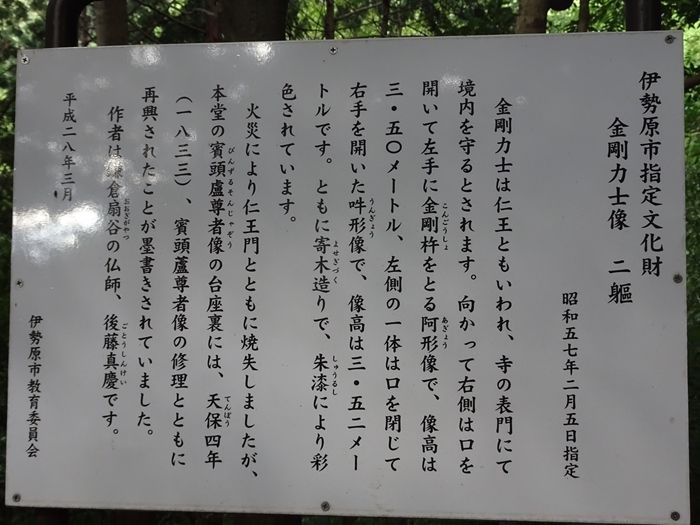 伊勢原市指定文化財
金剛力士像　二軀
昭和五七年二月五日指定
金剛力士は仁王ともいわれ、寺の表門にて
境内を守るとされます。向かって右側は口を
開いて左手に金剛杵をとる阿形像で、像高は
三・五〇メートル、左側の一体は口を閉じて
右手を開いた吽形像で、像高は三・五二メー
トルです。ともに寄木造りで、朱漆により彩
色されています。
火災により仁王門とともに焼失しましたが、
本堂の賓頭盧尊者像の台座裏には、天保四年
（一八三三）、賓頭蘆尊者像の修理とともに
再興されたことが墨書きされていました。
作者は鎌倉扇谷の仏師、後藤真慶です。
平成二八年三月
伊勢原市教育委員会